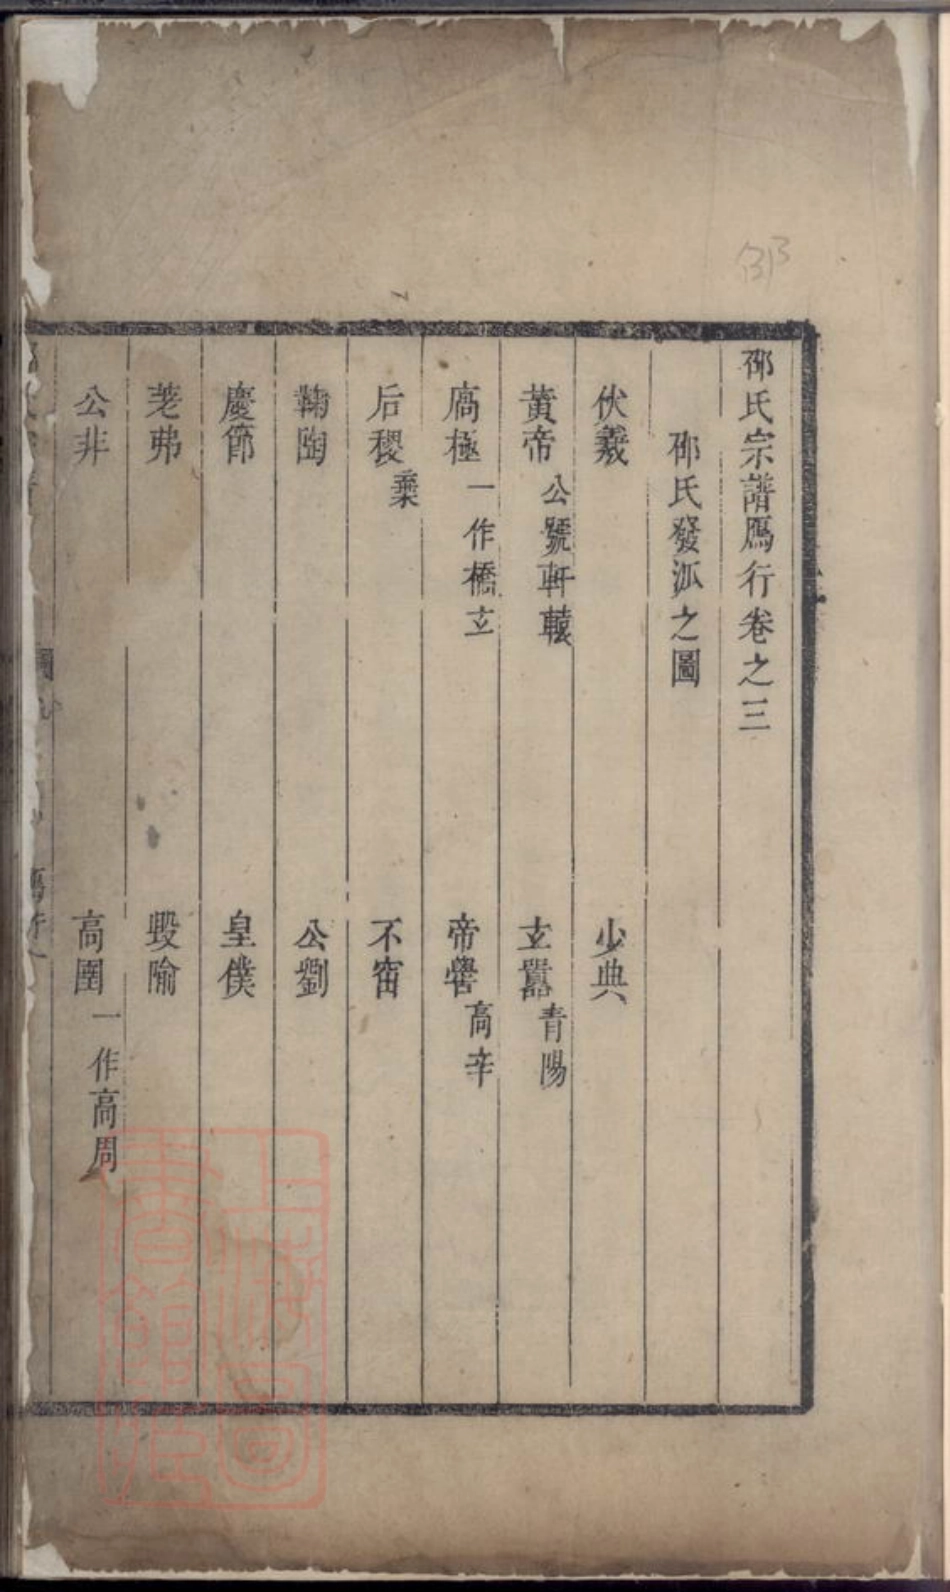 邵氏宗譜鴈行卷之三
邵氏發派之圖
伏羲 少典
黄帝 公號軒轅 玄囂 青陽
高極 一作橋玄 帝嚳 高辛
后稷 棄 不窋
鞠陶 公劉
慶節 皇僕
羌弗 毀隃
公非 高圉 一作高周
上海圖書館藏